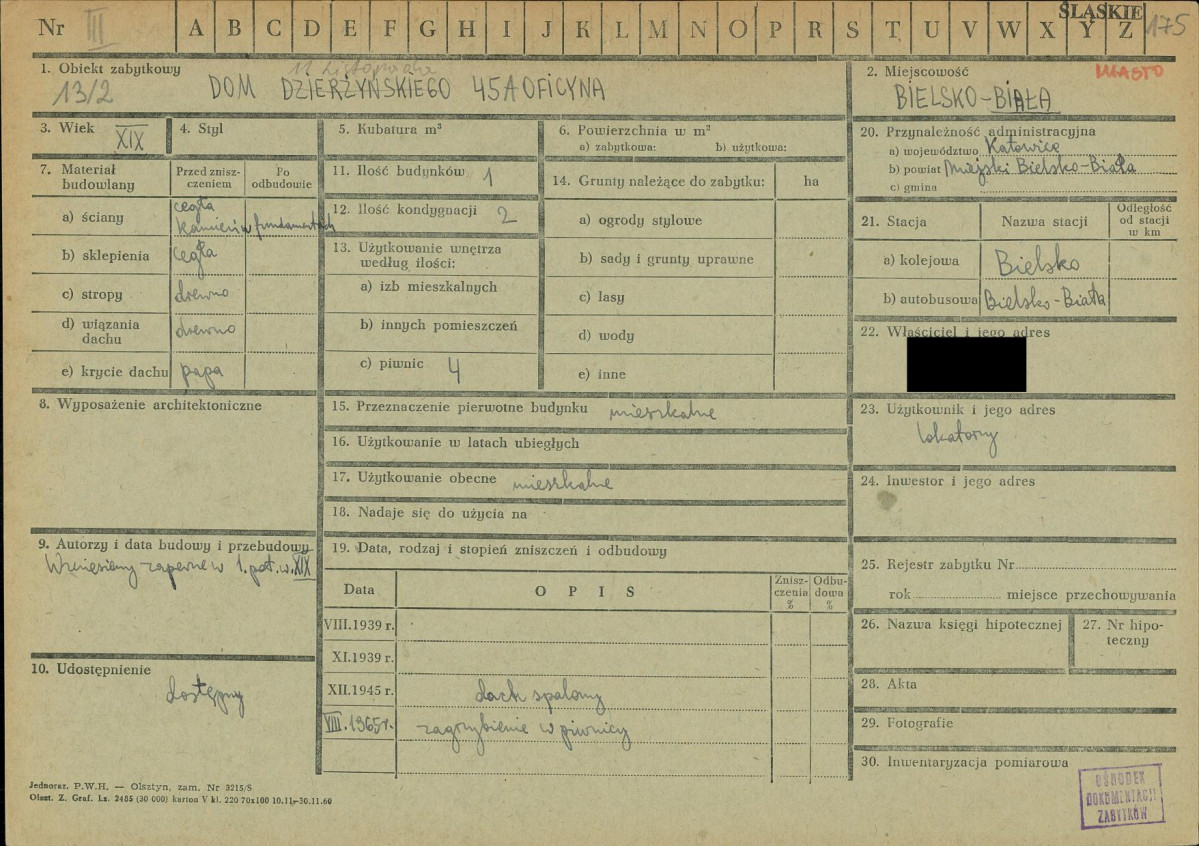 Nr III A B C D E F G H I J K L M N O P R S T U V W X Y Z
ŚLĄSKIE 175
1. Obiekt zabytkowy
13/2
11 Listopada
DOM DZIERŻYŃSKIEGO 45A OFICYNA
2. Miejscowość
MIASTO
BIELSKO-BIAŁA
3. Wiek XIX
4. Styl
5. Kubatura m³
6. Powierzchnia w m²
a) zabytkowa: b) użytkowa:
7. Materiał budowlany
Przed zniszczeniem
Po odbudowie
a) ściany cegła
kamień w fundamentach
b) sklepienia cegła
c) stropy drewno
d) wiązania dachu drewno
e) krycie dachu papa
8. Wyposażenie architektoniczne
9. Autorzy i data budowy i przebudowy
Wzniesiony zapewne w 1. poł. w. XIX
10. Udostępnienie
dostępny
11. Ilość budynków 1
12. Ilość kondygnacji 2
13. Użytkowanie wnętrza
według ilości:
a) izb mieszkalnych
b) innych pomieszczeń
c) piwnic 4
14. Grunty należące do zabytku: ha
a) ogrody stylowe
b) sady i grunty uprawne
c) lasy
d) wody
e) inne
15. Przeznaczenie pierwotne budynku mieszkalne
16. Użytkowanie w latach ubiegłych
17. Użytkowanie obecne mieszkalne
18. Nadaje się do użycia na
19. Data, rodzaj i stopień zniszczeń i odbudowy
Data
OPIS
Zniszczenia %
Odbudowa %
VIII.1939 r.
XI.1939 r.
XII.1945 r. dach spalony
VIII.1965 r. zagrzybienie w piwnicy
20. Przynależność administracyjna
a) województwo Katowice
b) powiat Miejski Bielsko-Biała
c) gmina
21. Stacja
Nazwa stacji
Odległość od stacji w km
a) kolejowa Bielsko
b) autobusowa Bielsko-Biała
22. Właściciel i jego adres
23. Użytkownik i jego adres
lokatorzy
24. Inwestor i jego adres
25. Rejestr zabytku Nr
rok miejsce przechowywania
26. Nazwa księgi hipotecznej
27. Nr hipoteczny
28. Akta
29. Fotografie
30. Inwentaryzacja pomiarowa
OŚRODEK
DOKUMENTACJI
ZABYTKÓW
Jednoraz. P.W.H. — Olsztyn, zam. Nr 3215/S
Olszt. Z. Graf. Lz. 2485 (30 000) karton V kl. 220 70x100 10.11.-30.11.60